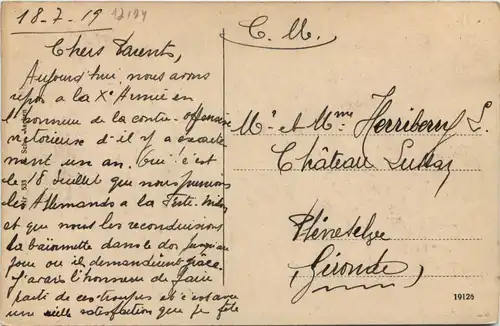 18-7-19 12194
Chers Parents,
Aujourd'hui nous avons
repos a la Xe Armée en
l'honneur de la contre-offensive
victorieuse d'il y a exacte
ment un an. Oui c'est
le 18 Juillet que nous
les Allemands a la
et que nous les reconduisions
la baïonnette dans le dos jusqu'au
jour ou ils demandèrent grâce.
J'avais l'honneur de faire
partie de ces troupes et c'est avec
une satisfaction que je fête
C. M.
Mr et Mme L.
Château
(Gironde)
19126